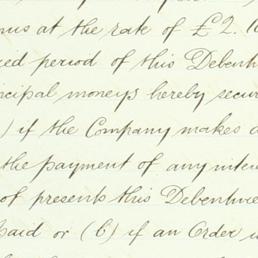 nus at the rate of £2. 10
ied period of this Debent
ncipal moneys hereby secur
) if the Company makes d
the payment of any inter
of presents this Debenture
said or (b) if an Order i